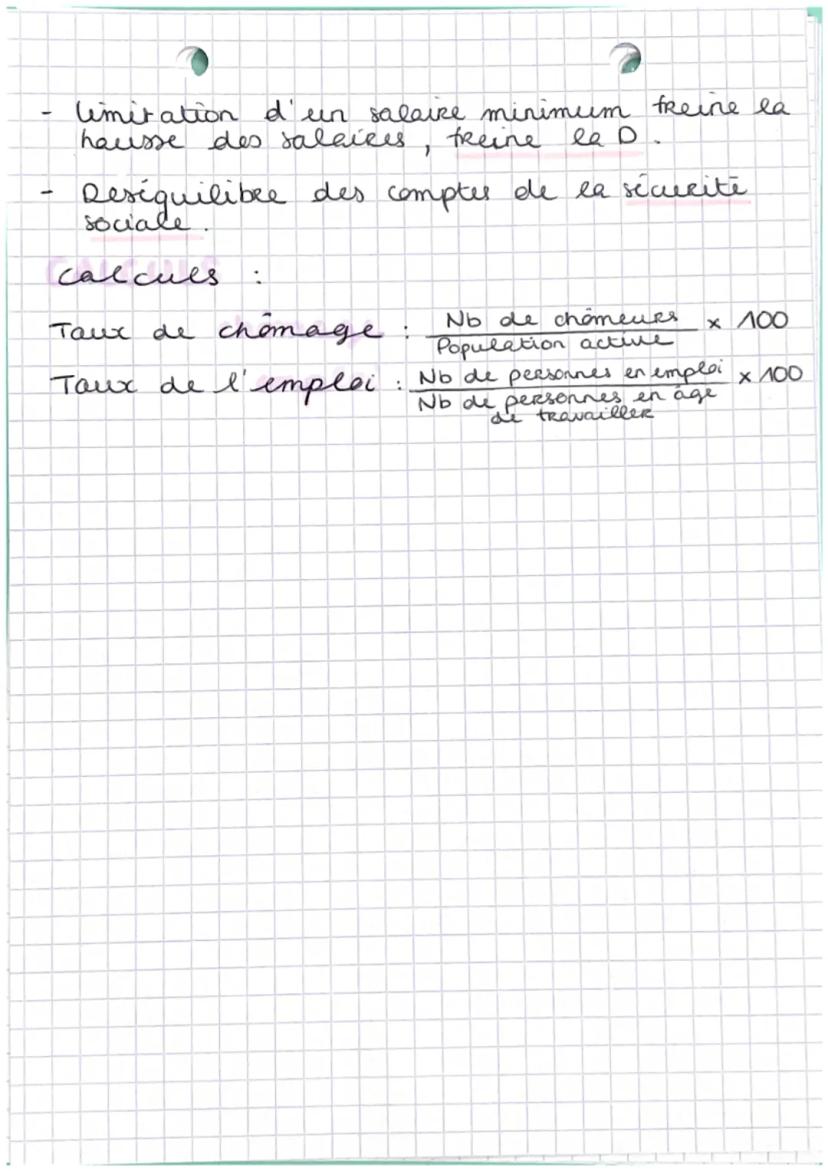 - limitation d'un salaire minimum freine la
hausse des salaires, freine la D.
- Deséquilibre des comptes de la sécurité
sociale.
calculs :
Taux de chômage : Nb de chômeurs / Population active x 100
Taux de l'emploi : Nb de personnes en emploi / Nb de personnes en âge de travailler x 100